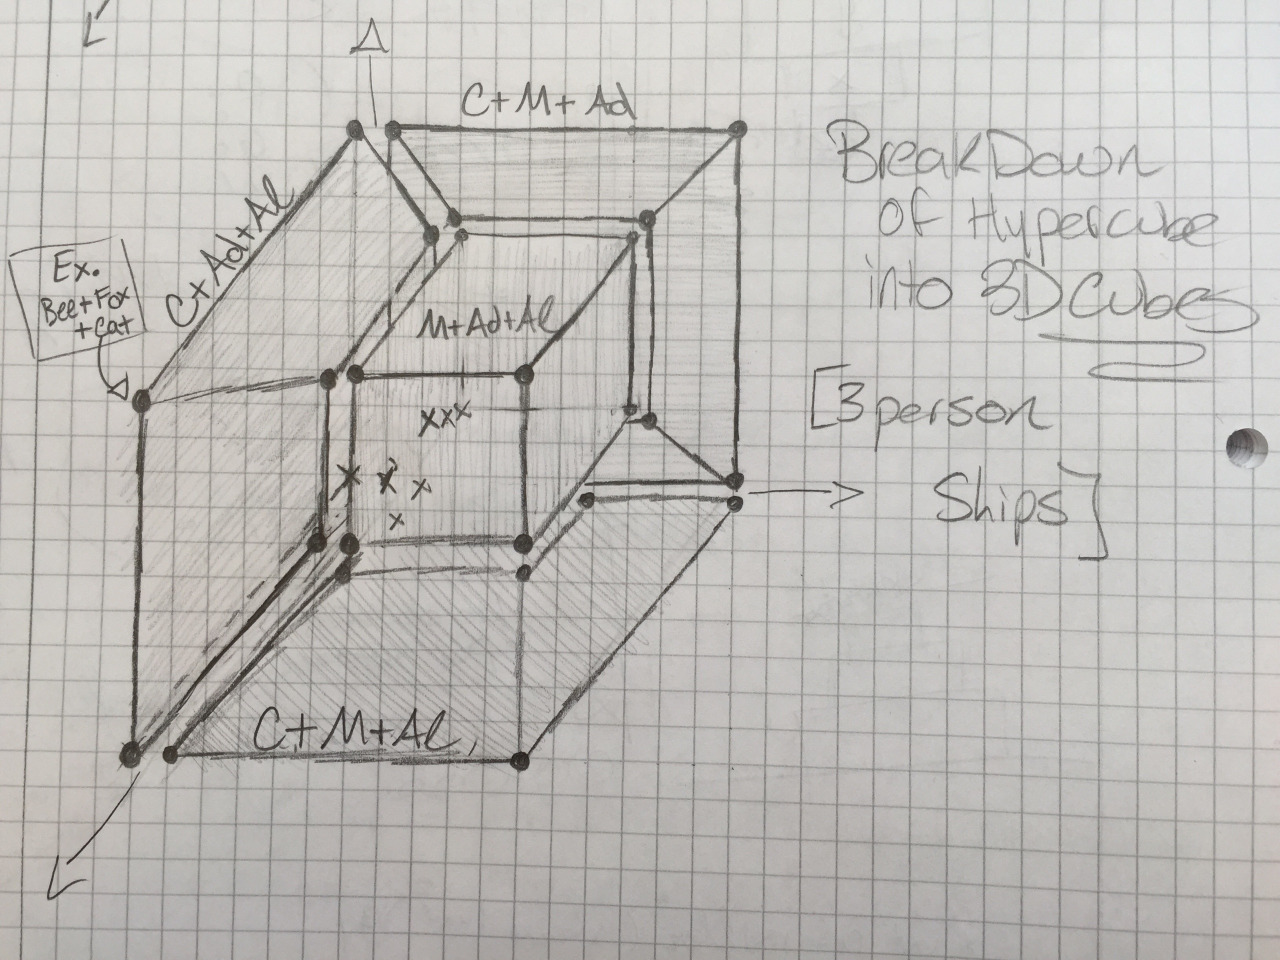 C+M+Ad
BreakDown
of Hypercube
into 3D Cubes
C+Ad+Al
Ex.
Bee+Fox
+Cat
M+Ad+Al
[3 person
Ships]
xxx
x x x
x
C+M+Al